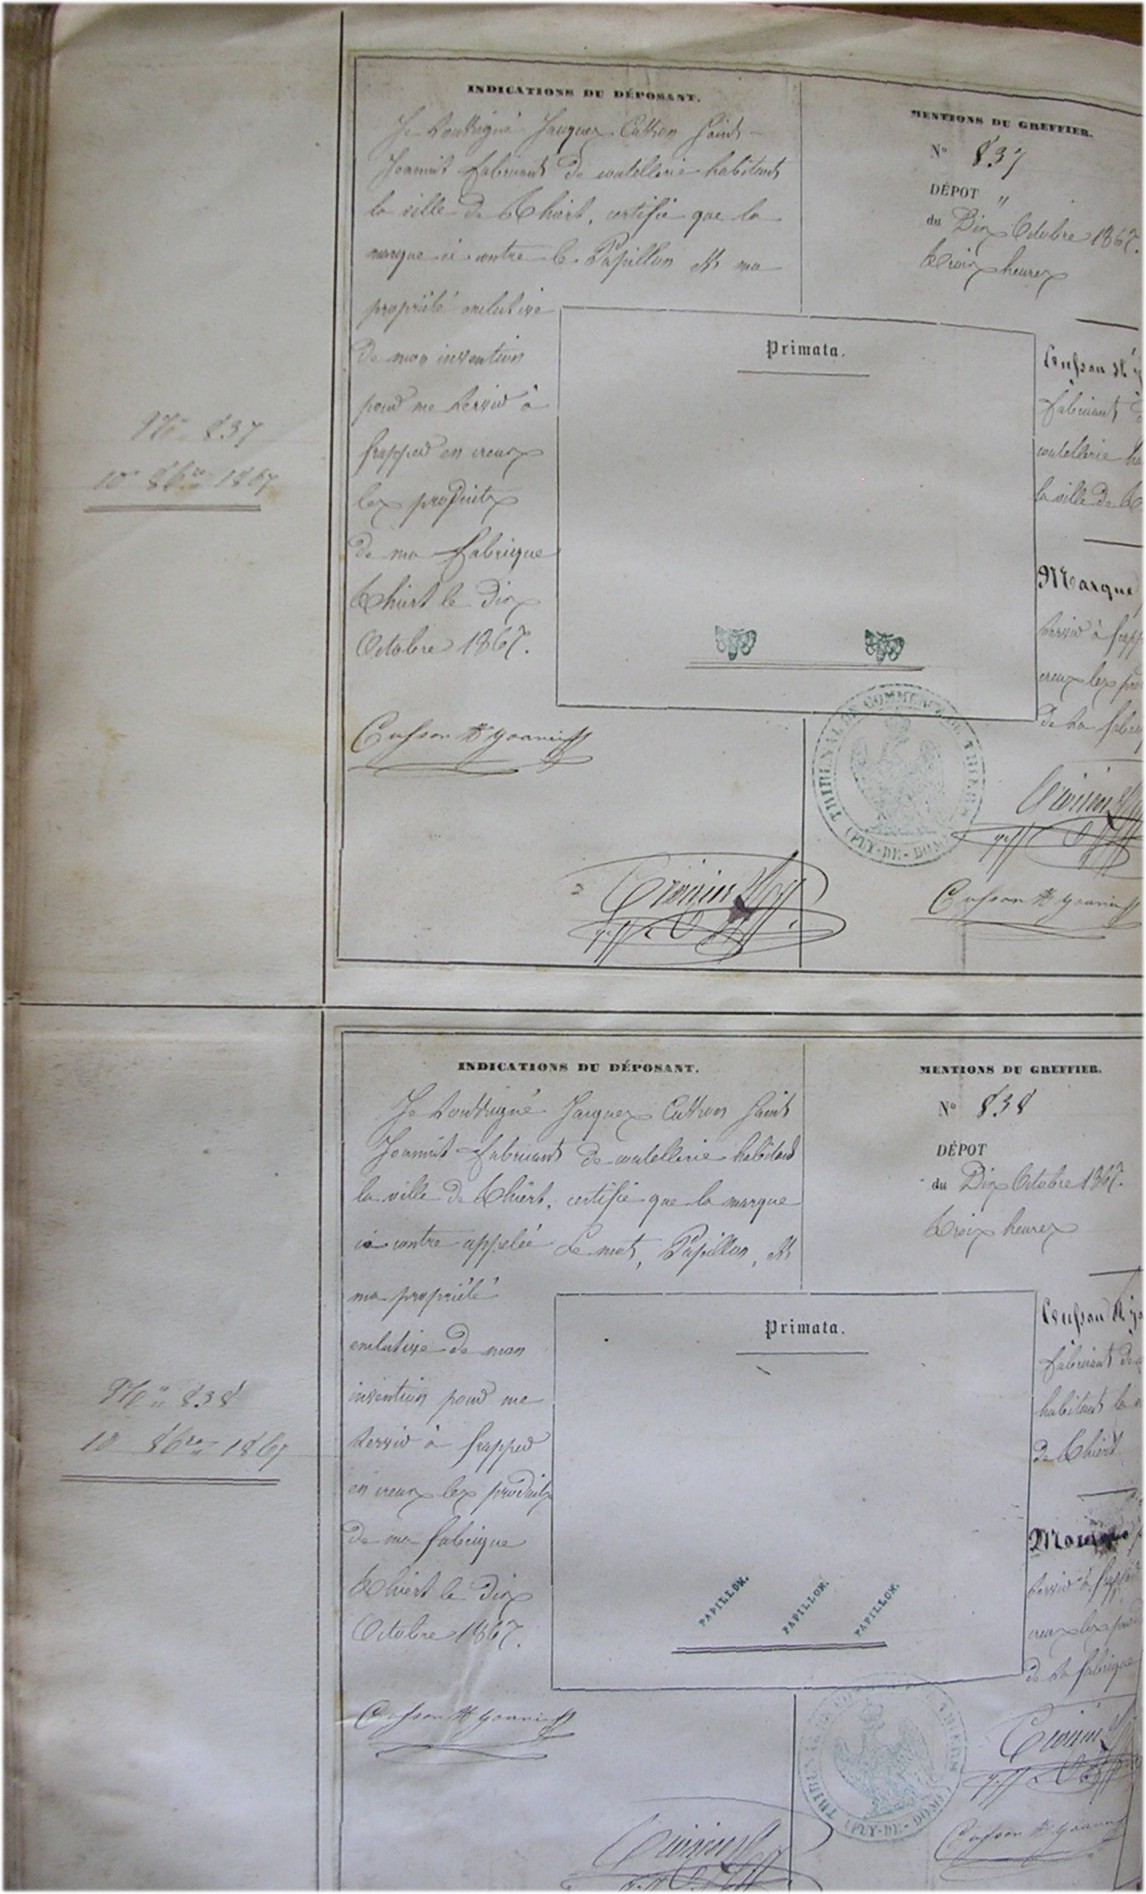 INDICATIONS DU DÉPOSANT.
Je soussigné Jacques Cusson Saint-
Joannis fabricant de coutellerie habitant
la ville de Thiers, certifie que la
marque ci contre le Papillon est ma
propriété exclusive
de mon invention
pour me servir à
frapper en creux
les produits
de ma fabrique
Thiers le Dix
Octobre 1867.
Cusson St Joannis
MENTIONS DU GREFFIER.
No 837
DÉPOT "
du Dix Octobre 1867.
trois heures
Primata.
Cusson St
fabricant
coutellerie
la ville de
Marque
servir à
creux les
de sa
TRIBUNAL DE COMMERCE DE THIERS
(PUY-DE-DOME)
Cusson St Joannis
No 837
10 8bre 1867
INDICATIONS DU DÉPOSANT.
Je soussigné Jacques Cusson Saint
Joannis fabricant de coutellerie habitant
la ville de Thiers, certifie que la marque
ci contre appelée Le mot, Papillon, est
ma propriété
exclusive de mon
invention pour me
servir à frapper
en creux les produits
de ma fabrique
Thiers le Dix
Octobre 1867.
Cusson St Joannis
MENTIONS DU GREFFIER.
No 838
DÉPOT
du Dix Octobre 1867.
trois heures
Primata.
PAPILLON. PAPILLON. PAPILLON.
Cusson St
fabricant de
habitant la
de Thiers
Marque
servir à
creux les
de sa fabrique
TRIBUNAL DE COMMERCE DE THIERS
(PUY-DE-DOME)
Cusson St Joannis
No 838
10 8bre 1867